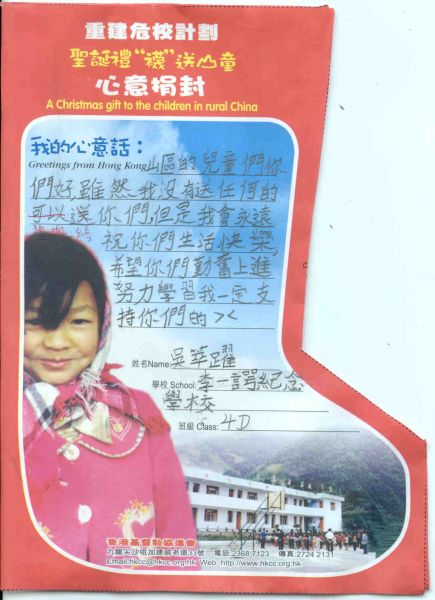 重建危校計劃
聖誕禮“襪”送山童
心意捐封
A Christmas gift to the children in rural China
我的心意話：
Greetings from Hong Kong 山區的兒童們你
們好雖然我沒有送任何的
可以送你們,但是我會永遠
祝你們生活快樂,
希望你們勤奮上進
努力學習我一定支
持你們的 ><
姓名Name: 吳華躍
學校 School: 李一諤紀念
學校
班級 Class: 4D
香港基督教協進會
九龍尖沙咀加連威老道33號 電話:2368 7123 傳真:2724 2131
Email:hkcc@hkcc.org.hk Web :http://www.hkcc.org.hk